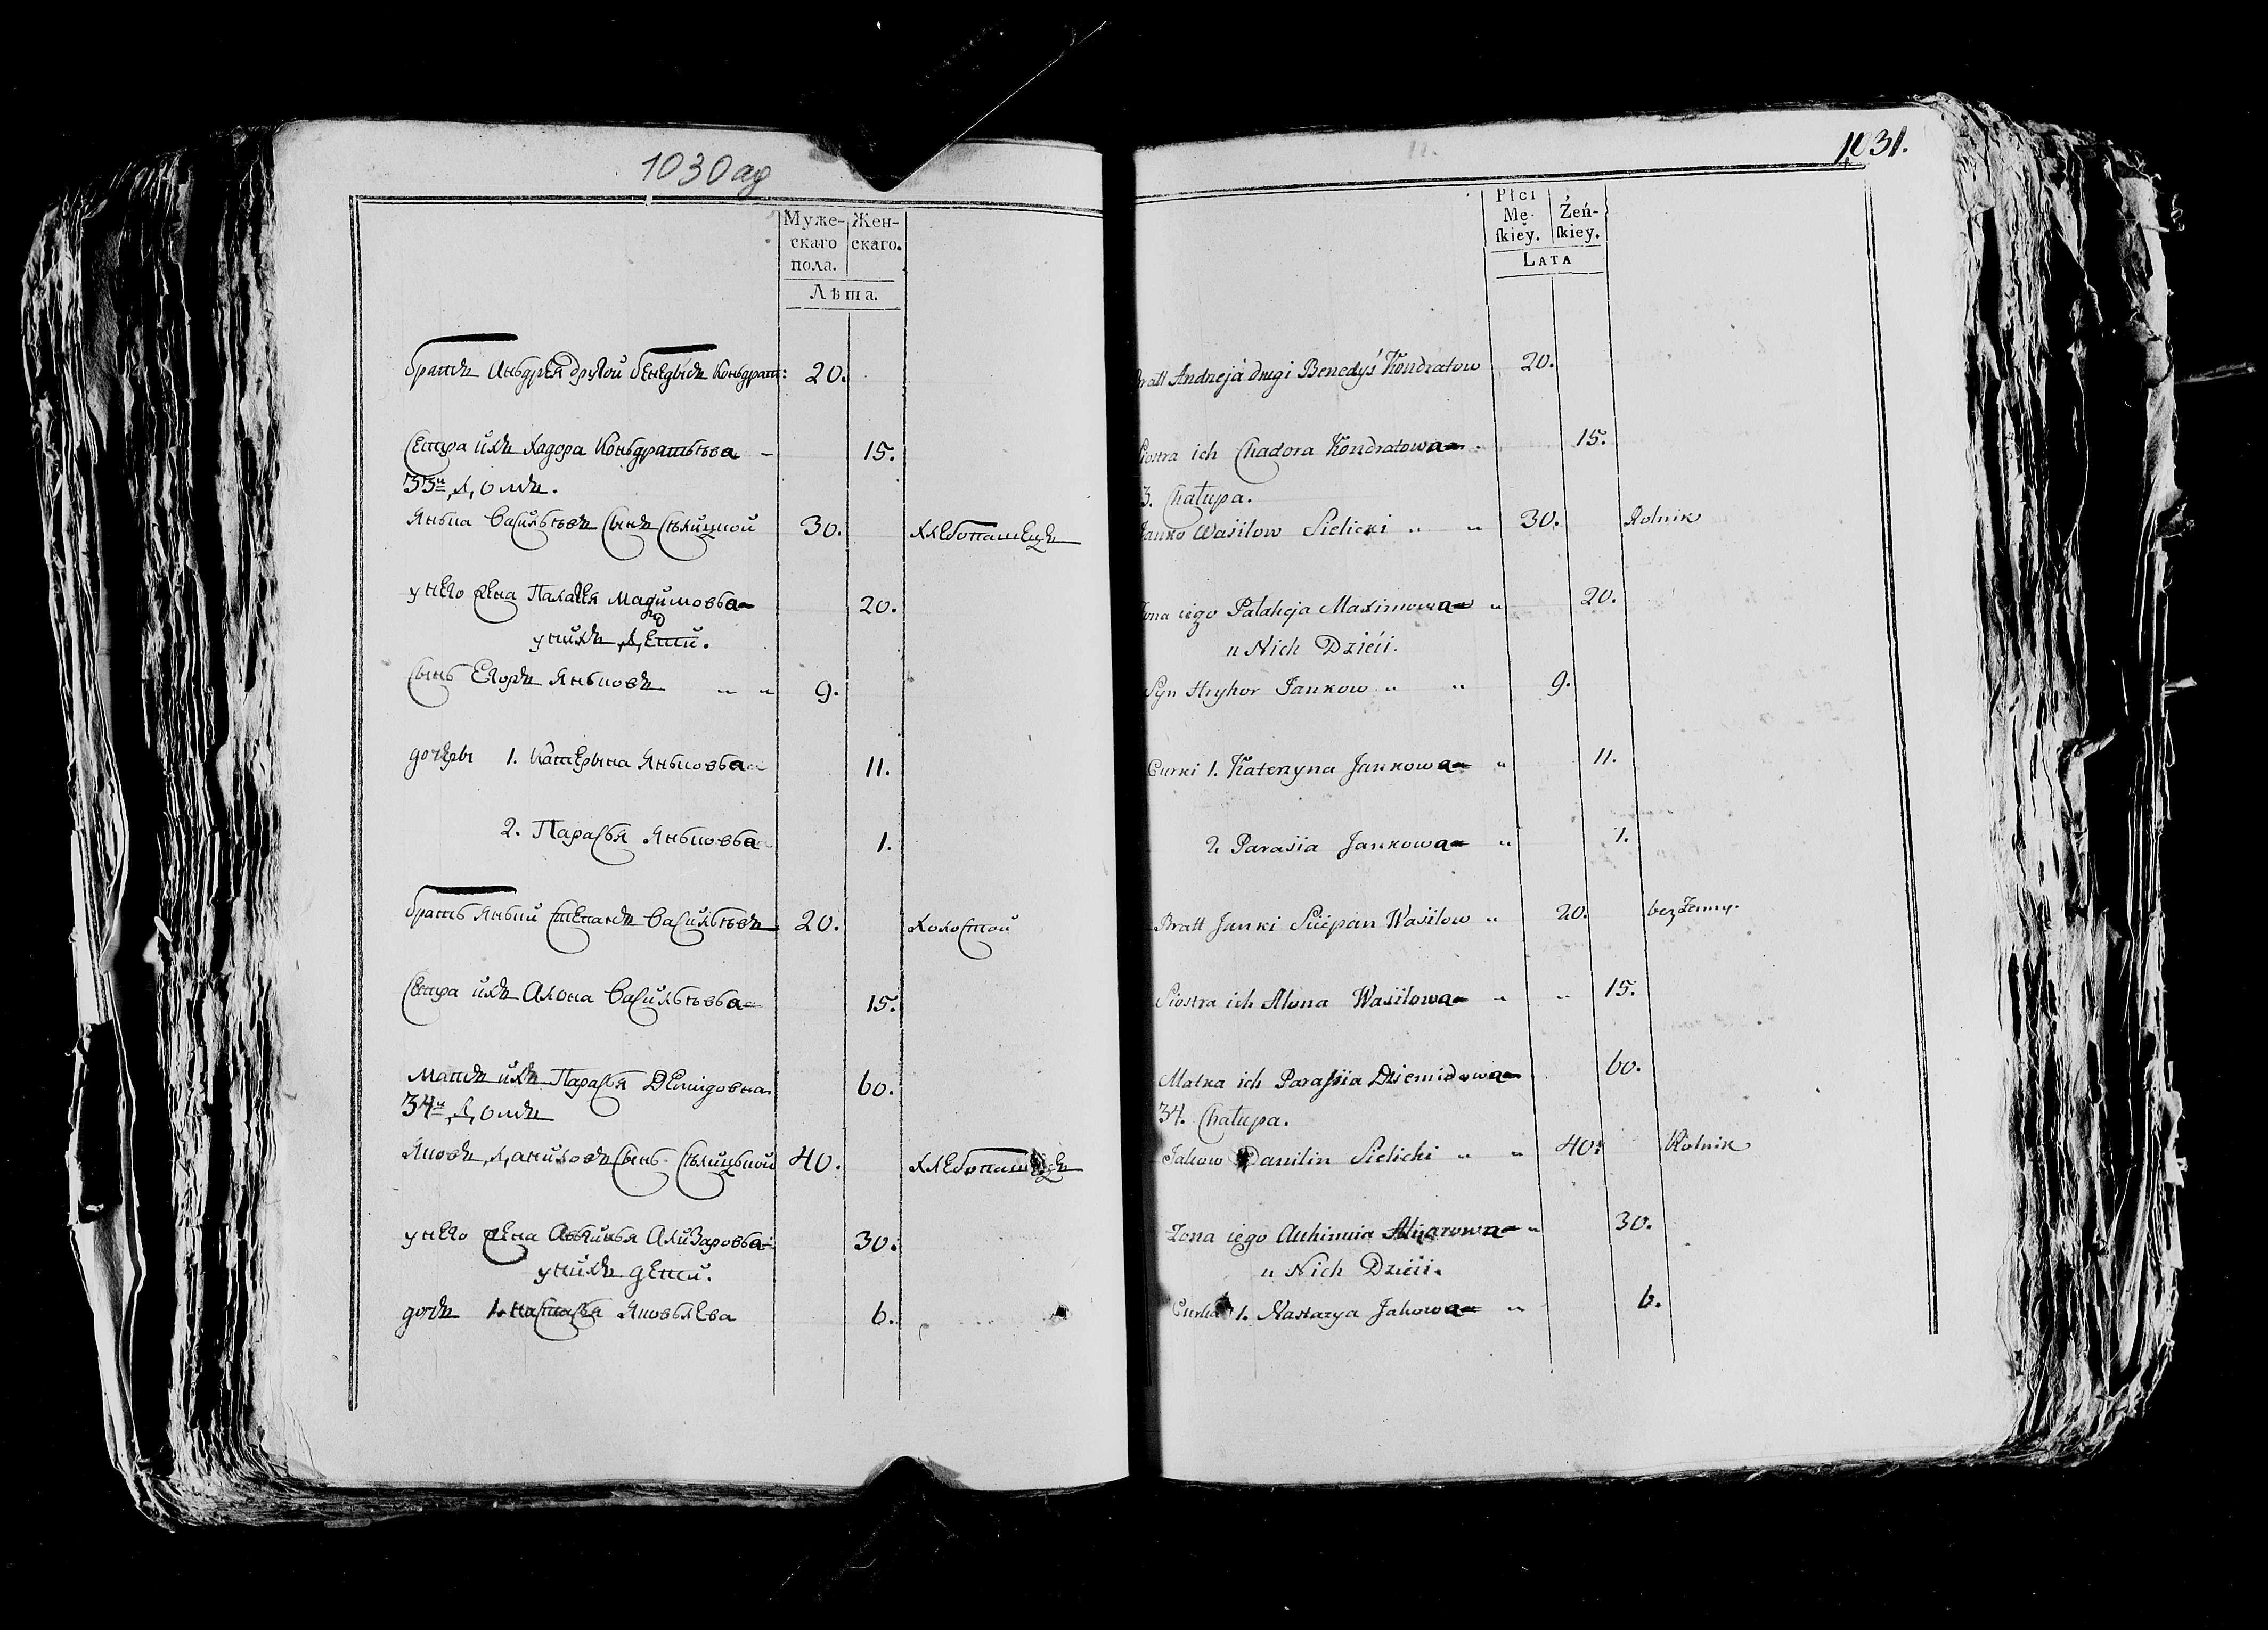 1030 аб
Муже- Жен-
скаго скаго.
пола.
Лѣта.
братъ Аньдрея другой бенедысь Коньдрат: 20.
Сестра ихъ Хадора Коньдратьева - 15.
33й домъ.
Янька Васильевъ Сынъ Сѣлицкой 30. хлебопашецъ
у него жена Палагея Мадимовьа 20.
у нихъ дети.
Сынъ Егоръ Яньковъ " " 9.
дочеры 1. Катерына Яньковьа 11.
2. Парасья Яньковьа 1.
братъ Яньки Степанъ Васильевъ 20. холостой
Сестра ихъ Алона Васильевьа 15.
Матъ ихъ Парасья Демидовна 60.
34й домъ
Яковъ Даниловъ Сынъ Сѣлицькой 40. хлебопашецъ
у него жена Ализаровьа 30.
у нихъ дети.
дочъ 1. настасья Яковьлева 6.
1031.
Płci
Mę- Żeń-
ſkiey. ſkiey.
LATA
Bratt Andreja drugi Benedyś Kondratow 20.
Siostra ich Chadora Kondratowa 15.
3. Chałupa.
Janko Wasilow Sielicki " " 30. Rolnik
Żona iego Pałaheja Maximowa " 20.
u Nich Dzieći.
Syn Hryhor Jankow " " 9.
Curki 1. Kateryna Jankowa " 11.
2. Parasia Jankowa " 1.
Bratt Janki Sciepan Wasilow " 20. bez Żenny.
Siostra ich Alona Wasilowa " " 15.
Matka ich Parasia Dziemidowa 60.
34. Chałupa.
Jakow Danilin Sielicki " " 40. Rolnik
Żona iego Auhinnia Alizarowa " 30.
u Nich Dzieći.
Curka 1. Nastazya Jakowa " 6.